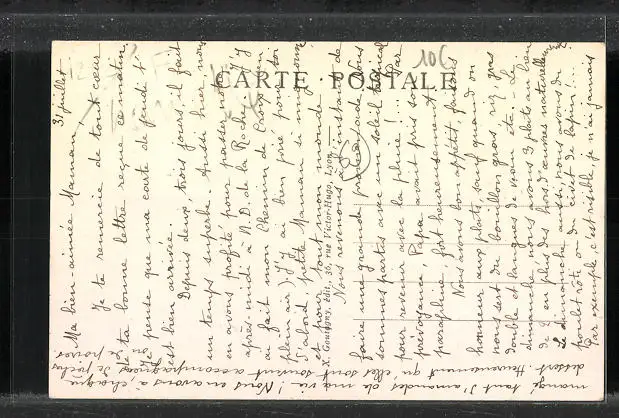 31 juillet
Ma bien aimée Maman,
Je te remercie de tout cœur
de ta bonne lettre reçue ce matin,
Je pense que ma carte de jeudi t'
est bien arrivée.
Depuis deux, trois jours, il fait
un temps superbe. Aussi hier, nous
en avons profité pour passer notre
après-midi à N.D. de la Roche. J'y
ai fait mon Chemin de Croix (en
plein air) j'y ai bien prié pour toi
d'abord petite Maman si mignonne
et pour tout mon monde
Nous revenons à l'instant de
faire une grande promenade. Nous
sommes partis avec un soleil
pour revenir avec la pluie!... Par
prévoyance, Papa avait pris son
parapluie, fort heureusement.
Nous avons bon appétit, faisons
honneur aux plats, sauf quand on
nous sert du bouillon gras, riz, gras
double et langues de
dimanche nous avons 3 plats au lieu
de 2 en plus des hors-d'œuvres naturellement
Le dimanche aussi, nous avons du
poulet rôti ou du civet de lapin!...
Par exemple, c'est risible, je n'ai jamais
mangé tant d'amandes de ma vie! Nous en avons à chaque
dessert. Heureusement qu'elles sont souvent accompagnées de pêches
ou de poires
CARTE POSTALE
10€
X. Goutagny, édit., 36, rue Victor-Hugo, Lyon